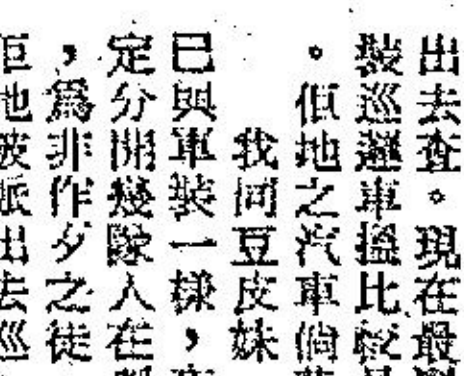 出去查。現在最
裝巡邏車搵比較
。佢地之汽車倘
我同豆皮妹
已與軍裝一樣，
定分開幾隊人在
，爲非作夕之徒
佢地被派出去巡